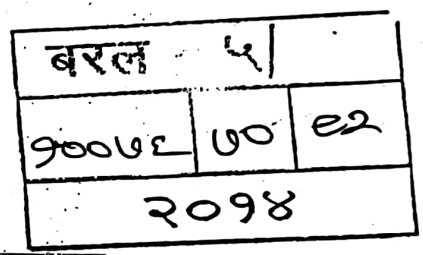 बरल ५|
१००७६ ७० ८२
२०१४